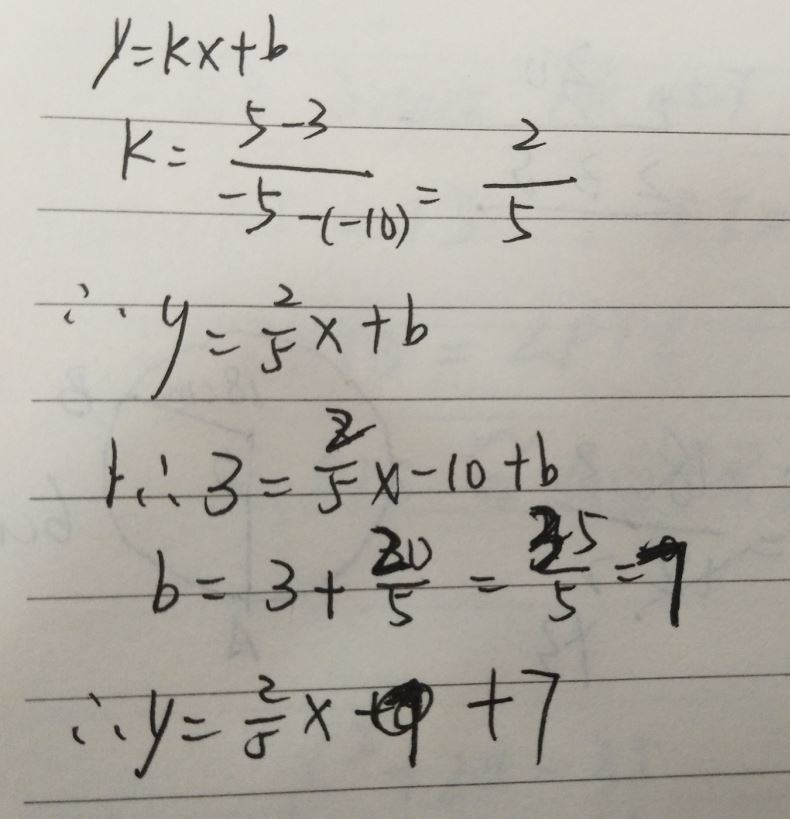 y=kx+b
k= (5-3)/(-5-(-10)) = 2/5
∴ y = 2/5 x + b
∴ 3 = 2/5 x -10 + b
b = 3 + 20/5 = 35/5 =
∴ y = 2/5 x +7